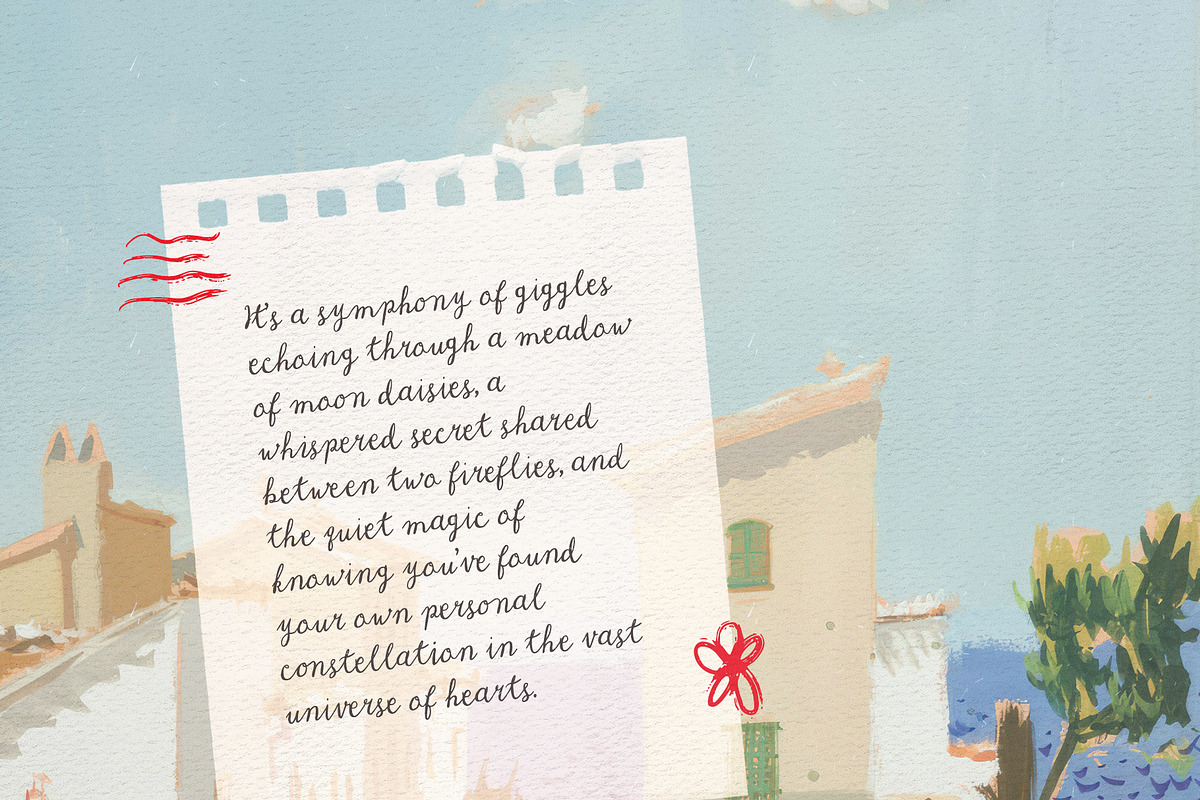 It's a symphony of giggles
echoing through a meadow
of moon daisies, a
whispered secret shared
between two fireflies, and
the quiet magic of
knowing you've found
your own personal
constellation in the vast
universe of hearts.